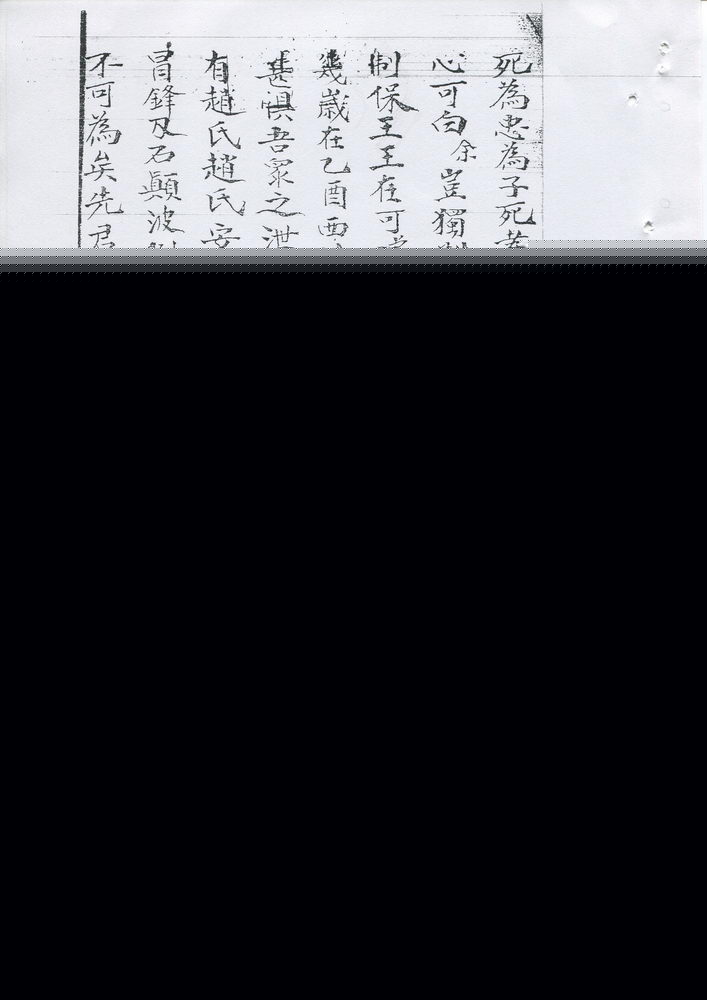 死為忠為子死
心可白余豈獨
制保王王在可
幾歲在乙酉西
甚懼吾眾之泄
有趙氏趙氏安
冒鋒及石顛波
不可為矣先君